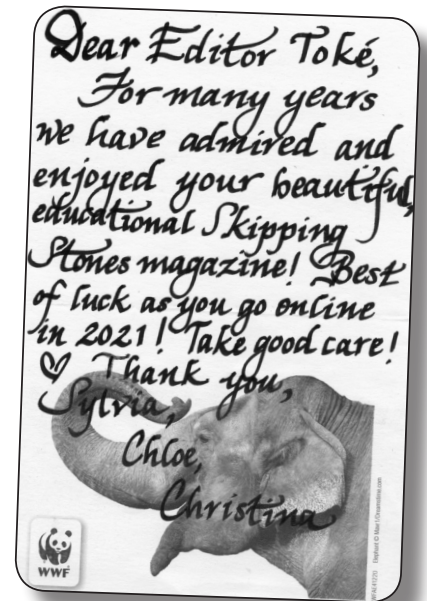 Dear Editor Toké,
For many years
we have admired and
enjoyed your beautiful,
educational Skipping
Stones magazine! Best
of luck as you go online
in 2021! Take good care!
♡ Thank you,
Sylvia,
Chloe,
Christina
WWF